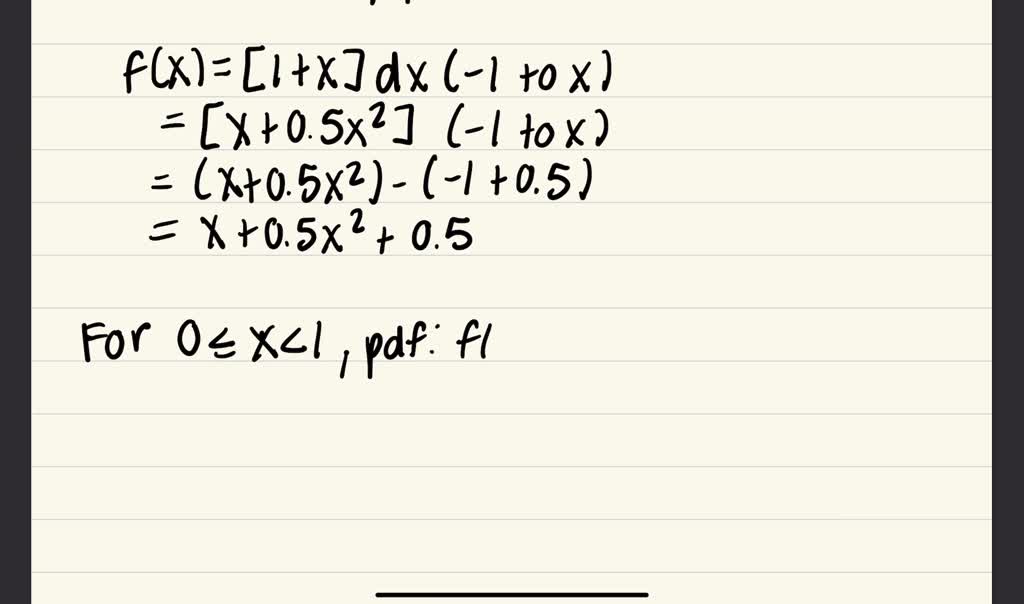 f(x) = [1+x] dx (-1 to x)
= [x+0.5x²] (-1 to x)
= (x+0.5x²) - (-1 + 0.5)
= x+0.5x² + 0.5
For 0 ≤ x < 1, pdf: f(